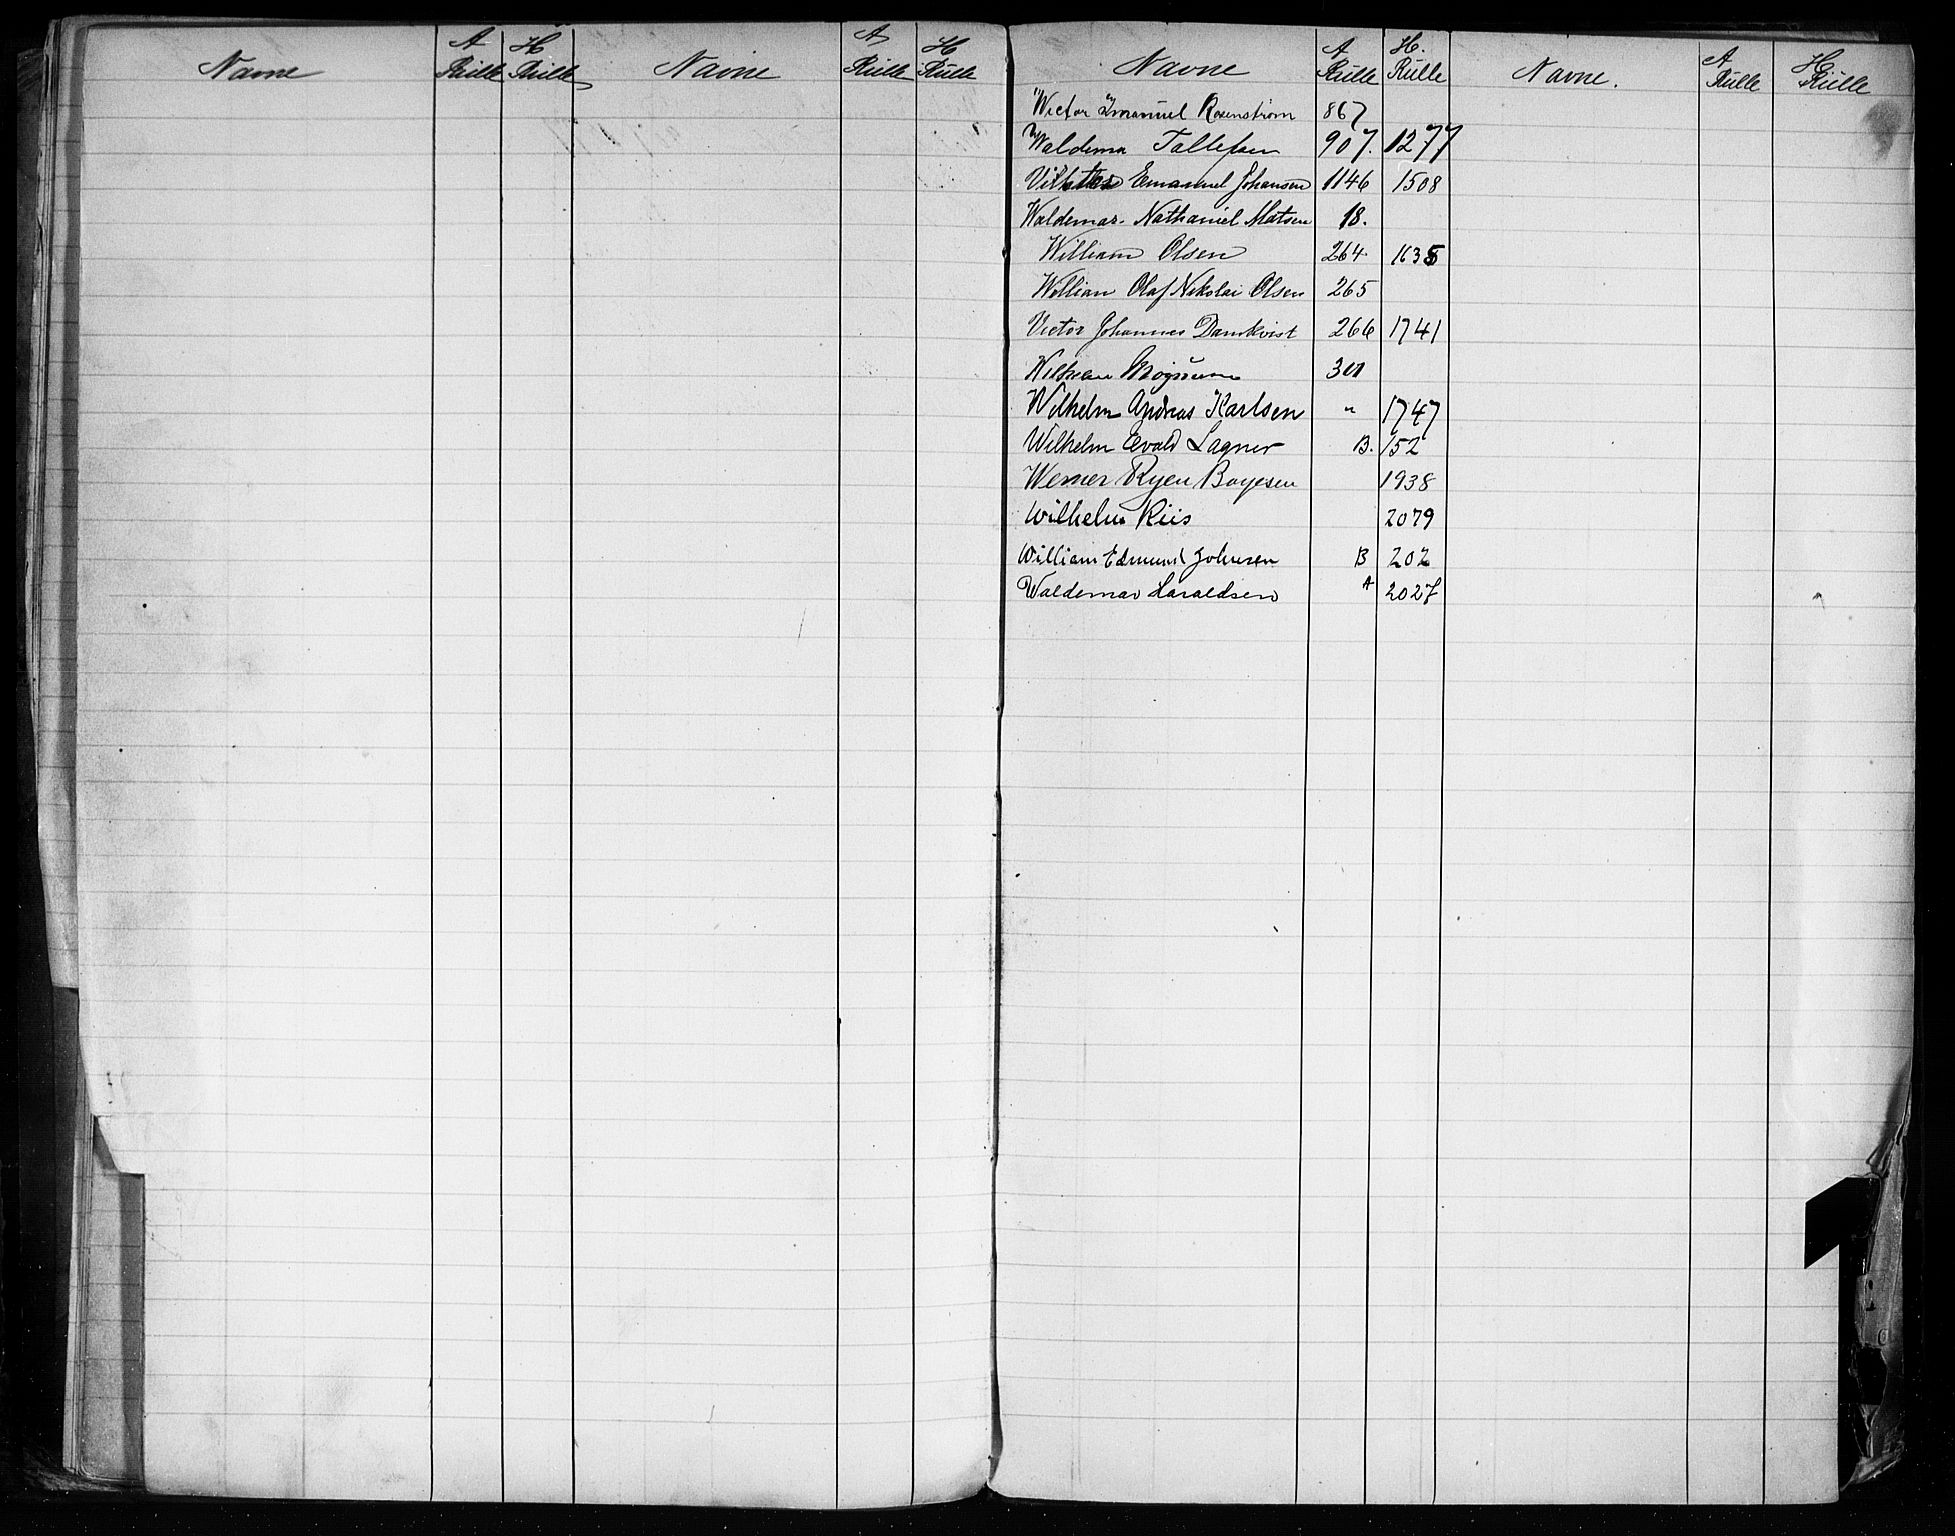 Navne A Rulle H Rulle Navne A Rulle H Rulle
Navne A Rulle H. Rulle Navne. A Rulle H Rulle
Wictor Imanuel Rosenstrøm 867
Waldema Tallefsen 907. 1277
Emanuel Johansen 1146 1508
Waldemar Nathaniel Matsen 18.
William Olsen 264 1635
Willian Olaf Nikolai Olsen 265
Victor Johannes Damkvist 266 1741
Magnum 301
Wilhelm Andreas Karlsen " 1747
Wilhelm Evald Lagner B. 152
Werner Ryen Boyesen 1938
Wilhelm Riis 2079
William Edmund Johnsen B 202
Waldemar Haraldsen A 2027